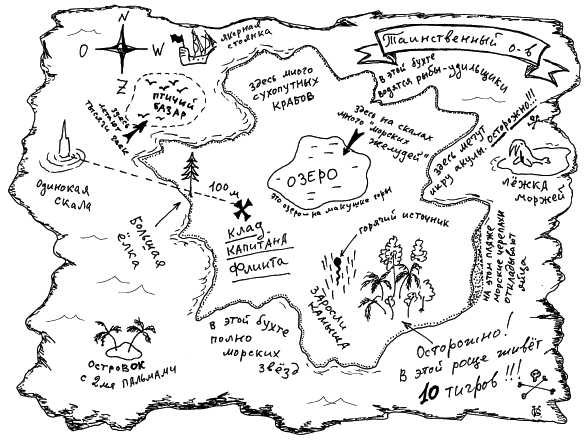 N
O
W
Z
якорная
стоянка
Таинственный о-в
В этой бухте
водятся рыбы-удильщики
Здесь много
сухопутных
крабов
птичий
базар
Здесь на скалах
много "морских
желудей"
Здесь мечут
икру акулы. Осторожно!!!
лёжка
моржей
Одинокая
скала
100 м
Большая
ёлка
Клад
капитана
Флинта
ОЗЕРО
это озеро на макушке горы
горячий источник
Заросли
камыша
На этом пляже
морские черепахи
откладывают
яйца
В этой бухте
полно
морских
звёзд
Островок
с 2мя пальмами
Осторожно!
В этой роще живёт
10 тигров!!!